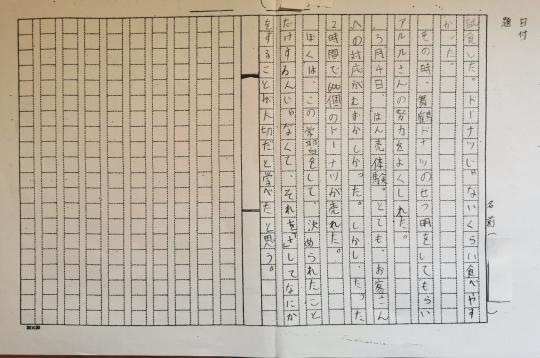 日付
題
名前(
試食した。ドーナツじゃないくらい食べやす
かった。
その時、舞鶴ドーナツのせつ明をしてもらい
アルルさんの努力をよくしれた。
3月4日、はん売体験。とても、お客さん
への対応がむずかしかった。しかし、たった
2時間で600個のドーナツが売れた。
ぼくは、この学習をして、決められたこと
だけするんじゃなくて、それを してなにか
をすることが大切だと学べたと思う。
20×20